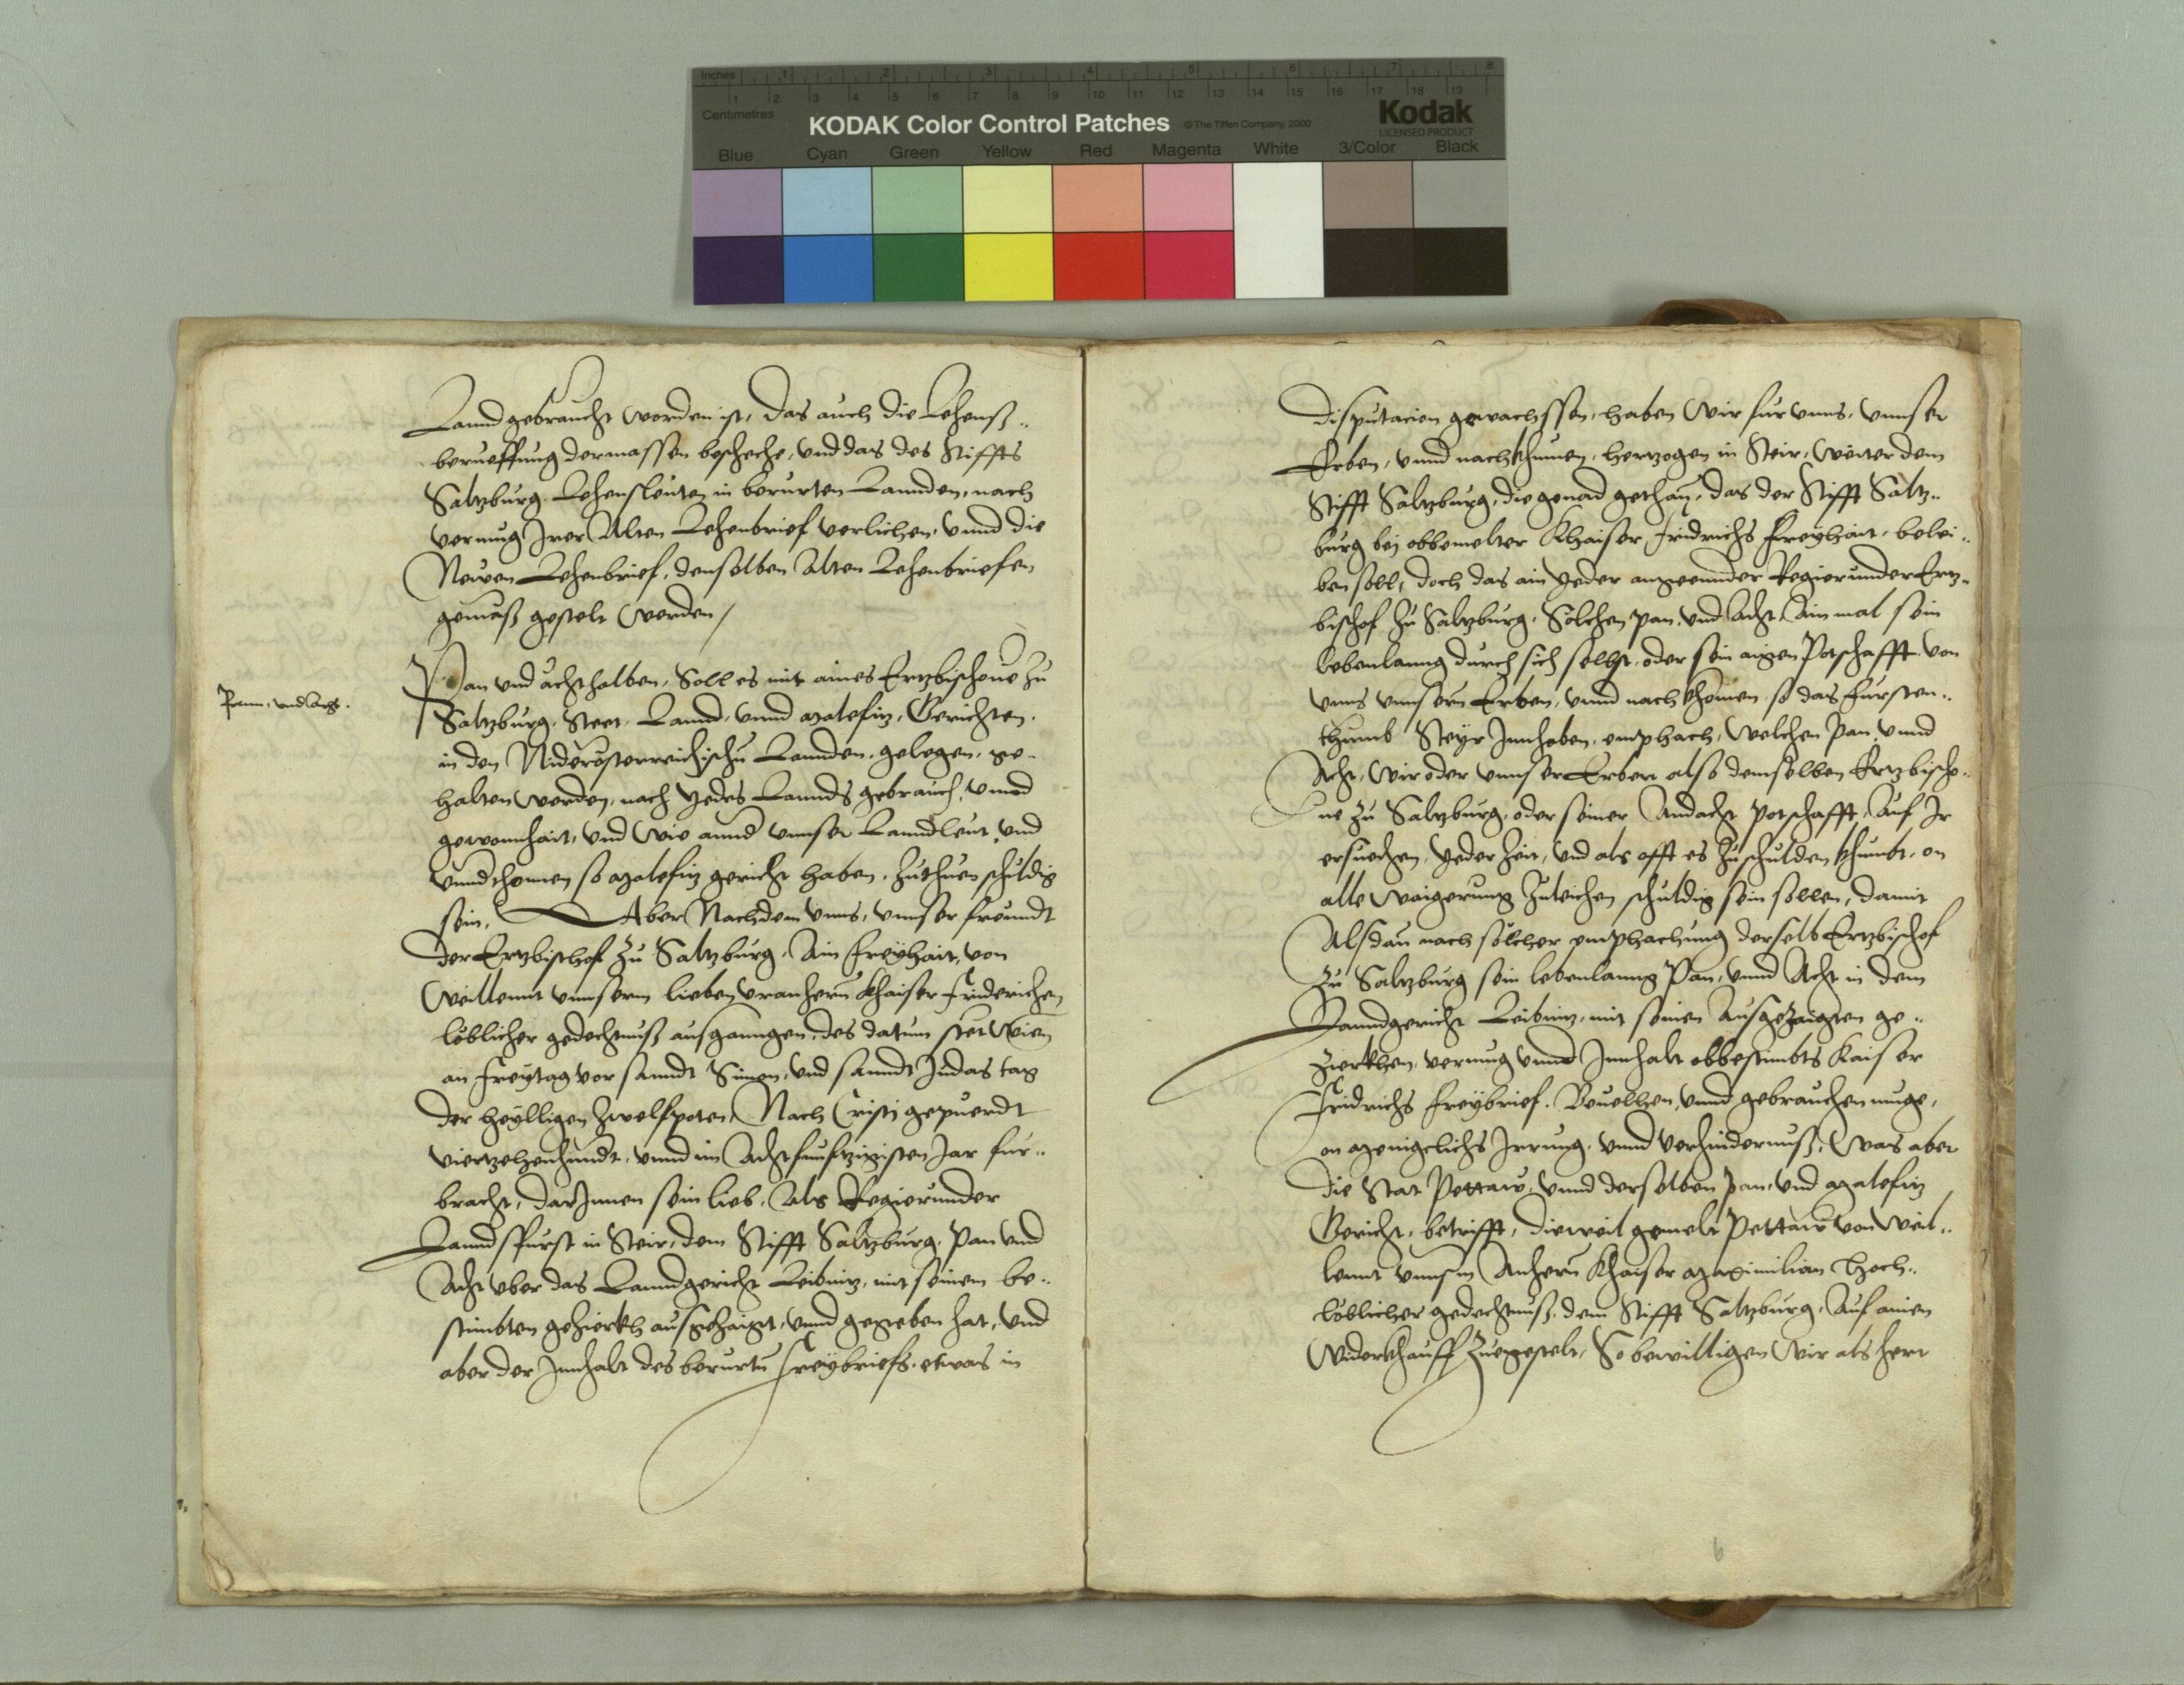 Inches 1 2 3 4 5 6 7 8
1 2 3 4 5 6 7 8 9 10 11 12 13 14 15 16 17 18 19
Centimetres
KODAK Color Control Patches © The Tiffen Company, 2000 Kodak
LICENSED PRODUCT
Blue Cyan Green Yellow Red Magenta White 3/Color Black
Lannd gebraucht worden ist, das auch die Lehenß..
berueffung dermassen bescheche, vnd das des Stiffts
Saltzburg Lehensleuten in berurten Lannden, nach
vermug Irer Alten Lehenbrief verlichen, vnnd die
Newen Lehenbrief, denselben Alten Lehenbriefen
gemäß gestelt werden /
Pann, vnd acht.
Pan vnd acht halben, Soll es mit aines Ertzbischoue zu
Saltzburg, Stet, Lannd, vnnd malefitz, Gerichten,
in den Niderösterreichischen Lannden, gelegen, ge-
halten werden, nach yedes Lannds gebrauch, vnnd
gewonnhait, vnd wie annder vnnser Lanndleut, vnd
vnnderthonen so malefitz gericht haben, zuthuen schuldig
sein, Aber Nachdem vnns, vnnser freundt
der Ertzbischof zu Saltzburg, Ain freyhait, von
Weillennt vnnserm lieben vranherrn Khaiser Friderichen
loblicher gedechtnuß ausganngen, des datum stet Wien
an freytag vor sanndt Simon, vnd sanndt Judas tag
der heylligen Zwelfpoten, Nach Cristi gepuerdt
viertzehenhundt, vnnd im Achtfunfftzigisten Jar fur..
bracht, dar Innen sein lieb, Als Regierunder
Lanndsfurst in Steir, dem Stifft Saltzburg, Pan vnd
Acht vber das Lanndgericht Leibnitz, mit seinem be..
stimbten gezierkh ausgezaigt, vnnd gegeben hat, vnd
aber der Innhalt des berurtn Freybriefs, etwas in
Disputacion gewachssen, haben Wir fur vnns, vnnser
Erben, vnnd nachkhumen, hertzogen in Steir, Weiter dem
Stifft Saltzburg, die genad gethan, das der Stifft Saltz..
burg bej obbemelter Khaiser Fridrichs Freyhait, belei..
ben soll, doch das ain yeder angeennder Regierunder Ertz..
bischof zu Saltzburg, Solchen pan, vnd Acht, Ain mal sein
lebenlanng durch sich selbst, oder sein aigen Potschafft, von
vnns vnnsern Erben, vnnd nachkhomen so das Fursten..
thumb Steyr Innhaben, emphach, Welchen Pan, vnnd
Acht, Wir oder vnnser Erben also demselben Ertzbischo..
ue zu Saltzburg, oder seiner Andacht potschafft, Auf Ir
ersuechen, yeder Zeit, vnd als offt es zuschulden khumbt, on
alle waigerung zuleichen schuldig sein sollen, damit
Alsdan nach solcher emphachung derselb Ertzbischof
zu Saltzburg sein lebenlanng Pan, vnnd Acht in dem
Lanndgericht Leibnitz, mit seinen Ausgezaigten ge..
zierkhen, vermug vnnd Innhalt obbestimbts Kaiser
Fridrichs Freybrief. Beuelhen, vnnd gebrauchen muge,
on menigclichs Irrung, vnnd verhindernuß, Was aber
die Stat Pettaw, vnnd derselben pan, vnd malefitz
Gericht, betrifft, dieweil gemelt Pettaw von Weil..
lennt vnnserm Anherrn Khaiser Maximilian Hoch..
loblicher gedechtnuß, dem Stifft Saltzburg, Auf ainen
Widerkhauff zuegestelt, So bewilligen Wir als herr
6